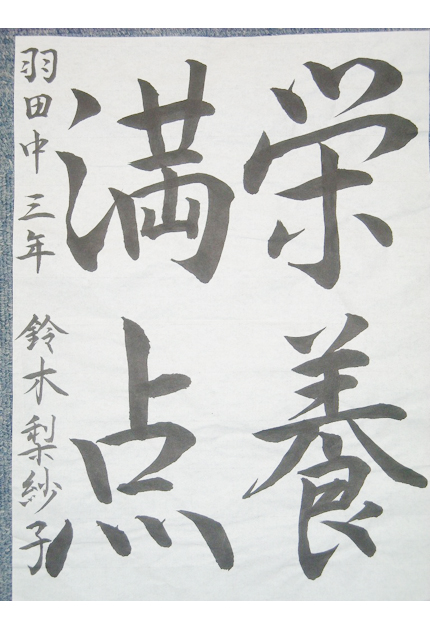 栄養
満点
羽田中三年 鈴木梨紗子